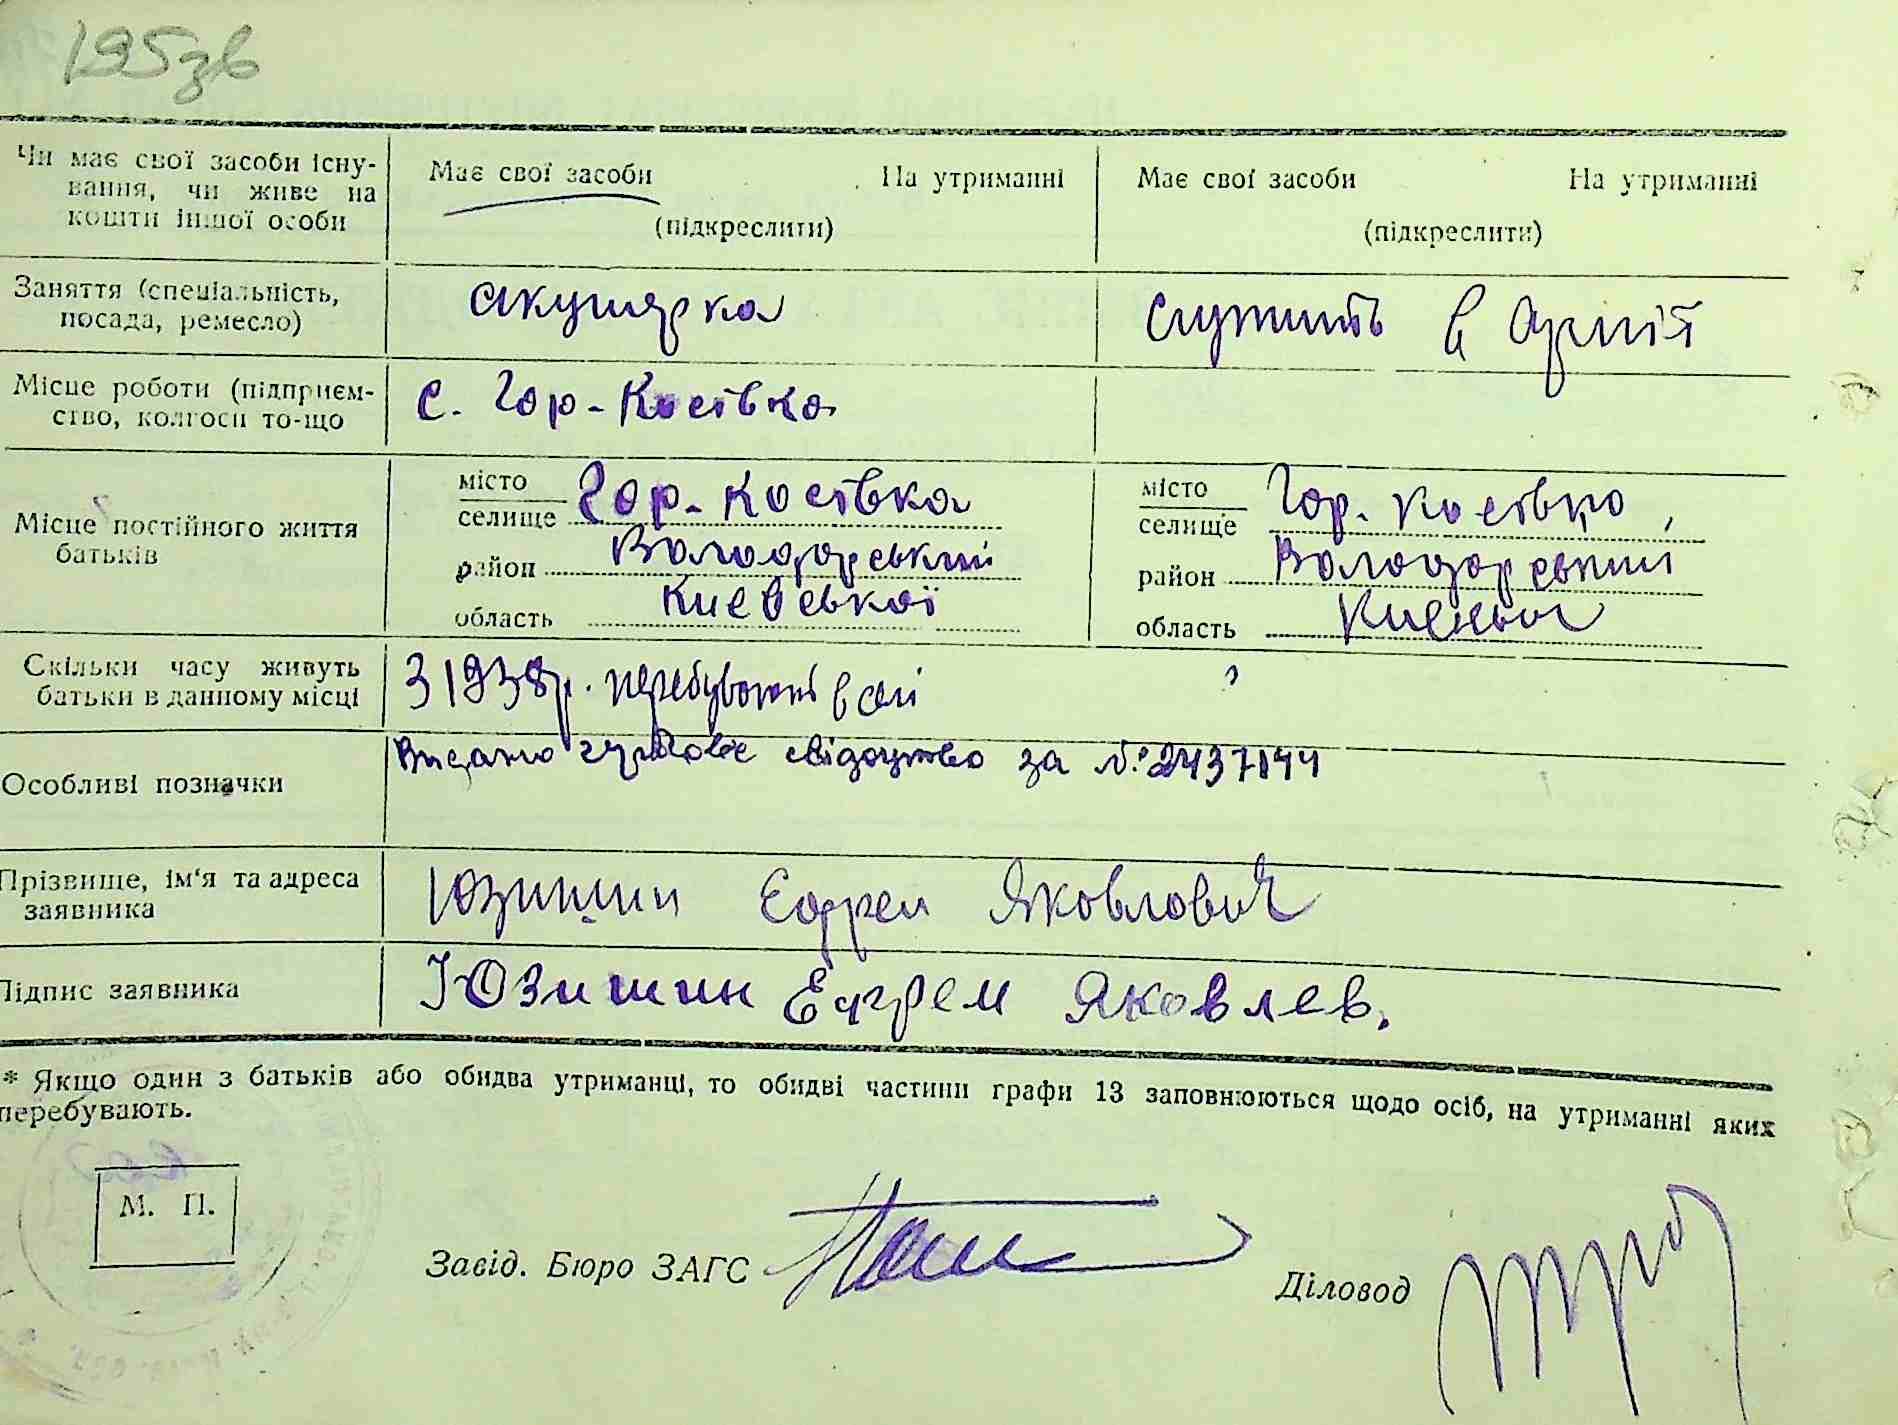 195зв
Чи має свої засоби існу-
вання, чи живе на
кошти іншої особи
Має свої засоби На утриманні
(підкреслити)
Має свої засоби На утриманні
(підкреслити)
Заняття (спеціальність,
посада, ремесло)
акушерка
служить в армії
Місце роботи (підприєм-
ство, колгосп то-що
с. Гор-Косівка
Місце постійного життя
батьків
місто
селище Гор-Косівка
район Володарський
область Киевської
місто
селище Гор. Косівка,
район Володарський
область
Скільки часу живуть
батьки в данному місці
З 1938р. перебувають в селі
Особливі позначки
Видано свідоцтво за №2437144
Прізвище, ім'я та адреса
заявника
Юзишин Ефрем Яковлович
Підпис заявника
Юзишин Ефрем Яковлев.
* Якщо один з батьків або обидва утриманці, то обидві частини графи 13 заповнюються щодо осіб, на утриманні яких
перебувають.
М. П.
Завід. Бюро ЗАГС
Діловод